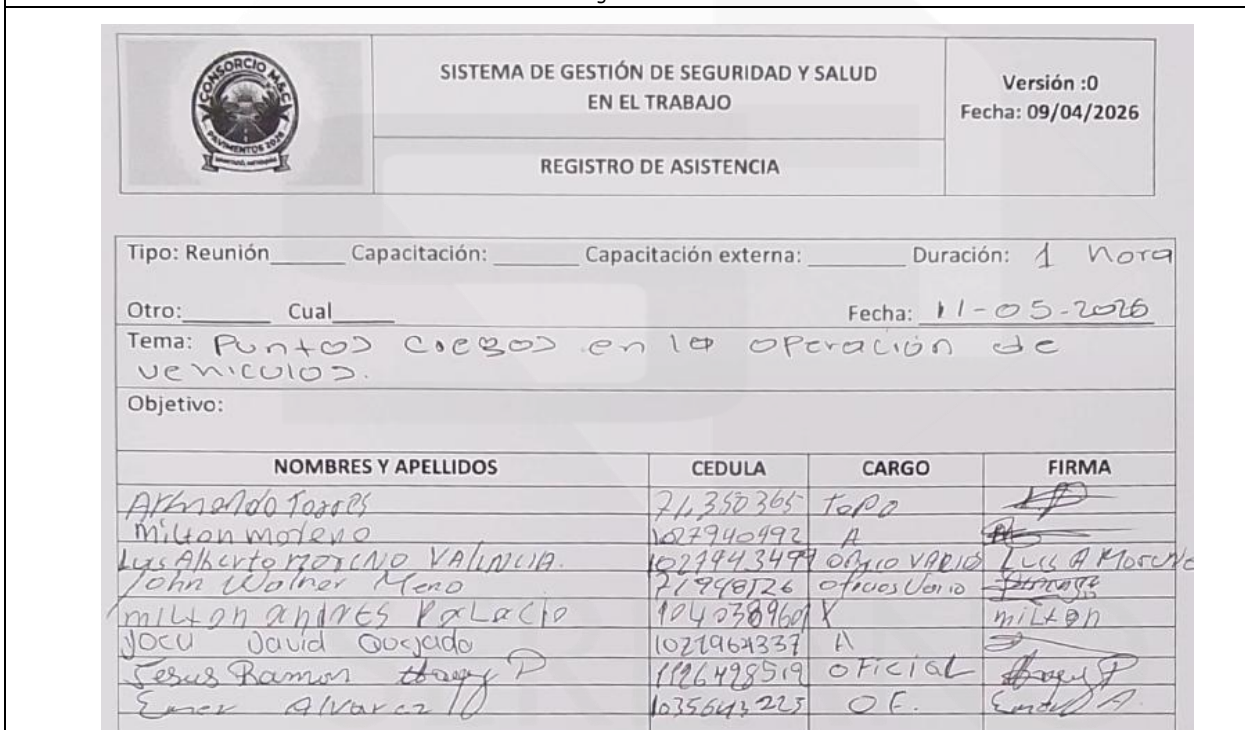 CONSORCIO M&C
PAVIMENTOS 2026
SISTEMA DE GESTIÓN DE SEGURIDAD Y SALUD
EN EL TRABAJO
Versión :0
Fecha: 09/04/2026
REGISTRO DE ASISTENCIA
Tipo: Reunión______ Capacitación: ______ Capacitación externa: ______ Duración: 1 hora
Otro:______ Cual______ Fecha: 11-05-2026
Tema: Puntos ciegos en la operación de
vehiculos.
Objetivo:
NOMBRES Y APELLIDOS CEDULA CARGO FIRMA
Armando Torres 71,350365 Topo
Milton moreno 1027940992 A
Luis Alberto MORENO VALENCIA. 1027943499 oficio VARIO Luis A Moreno
John Walner Meno 71948126 oficios Vario
milton andres Palacio 104038960 milton
David Quejada A
Jesus Ramon 1126498519 OFicial
Emer Alvarez 1035643223 OF.